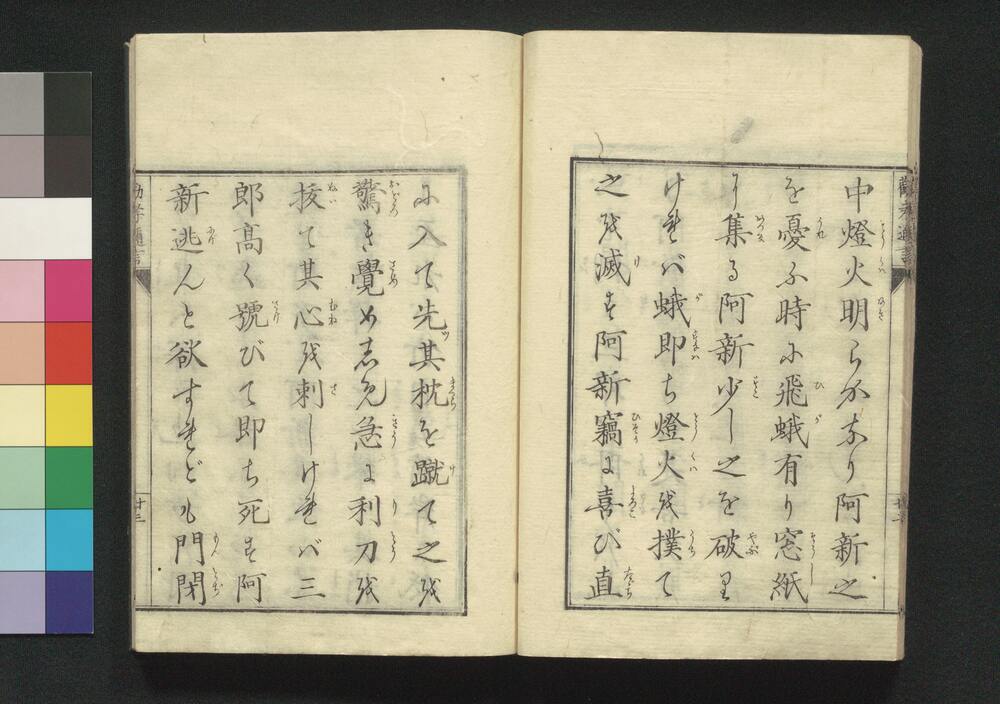 中燈火明らかなり阿新之
を憂ふ時に飛蛾有り窓紙
に集る阿新少し之を破り
ければ蛾即ち燈火を撲て
之を滅す阿新竊に喜び直
に入て先其枕を蹴て之を
驚き覺めしめ急に利刀を
拔て其心を刺しければ三
郎高く號びて即ち死す阿
新逃んと欲すれども門閉